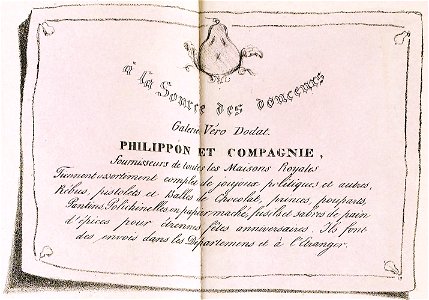 à la Source des douceurs
Galerie Véro Dodat.
PHILIPPON ET COMPAGNIE,
Fournisseurs de toutes les Maisons Royales
Tiennent assortiment complet de joujoux politiques et autres,
Rébus, pistolets et Balles de Chocolat, princes, pouparts,
Pantins, Polichinelles, en papier maché, fusils et sabres de pain
d'épices pour étrennes fêtes anniversaires. Ils font
des envois dans les Départemens et à l'Etranger.